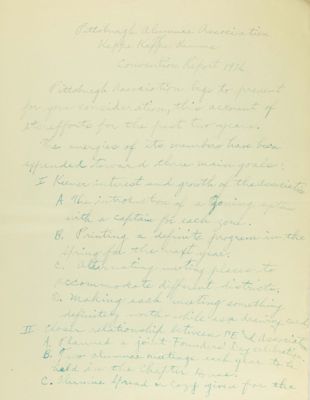 Pittsburgh Alumnae Association
Kappa Kappa Gamma
Convention Report 1936
Pittsburgh Association begs to present
for your consideration, this account of
its efforts for the past two years.
The energies of its members have been
expended toward three main goals:
I Keener interest and growth of the association
A. The introduction of a zoning system
with a captain for each zone.
B. Printing a definite program in the
Spring for the next year.
C. Alternating meeting places to
accommodate different districts.
D. Making each meeting something
definitely worth while as a drawing card
II Closer relationship between ΓΕ & Association
A. Planned a joint Founders' Day celebration
B. Two alumnae meetings each year to be
held in the Chapter House.
C. Alumnae Spread or Cozy given for the